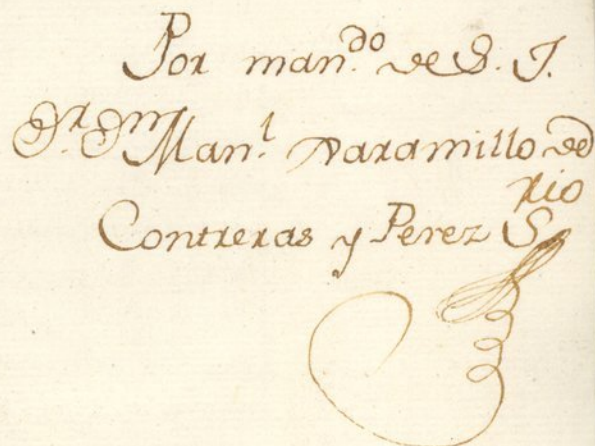 Por man.do de S. I.
Dr. Dn Man.l Jaramillo de
Contreras y Perez S.rio